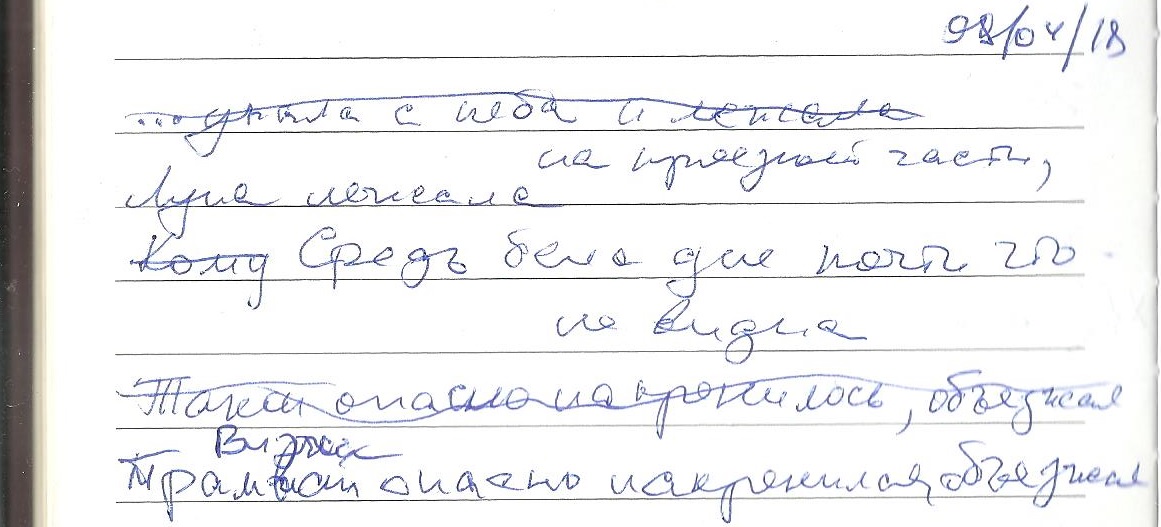 09/04/18
...упала с неба и лежала
на проезжей части,
Луна лежала
Кому Средь бела дня почти что
не видна
Такси опасно накренилось, объезжая
Визжа
Трамвай опасно накренился, объезжая